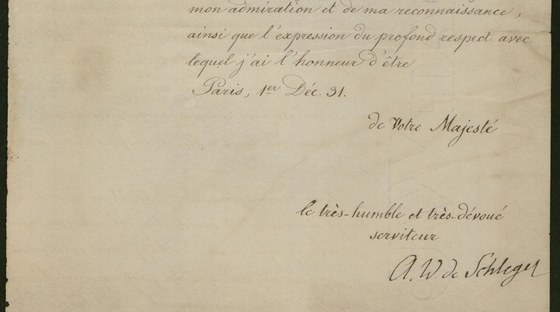 mon admiration et de ma reconnaissance,
ainsi que l'expression du profond respect avec
lequel j'ai l'honneur d'être
Paris, 1er Déc. 31.
de Votre Majesté
le très-humble et très-dévoué
serviteur
A. W. de Schlegel